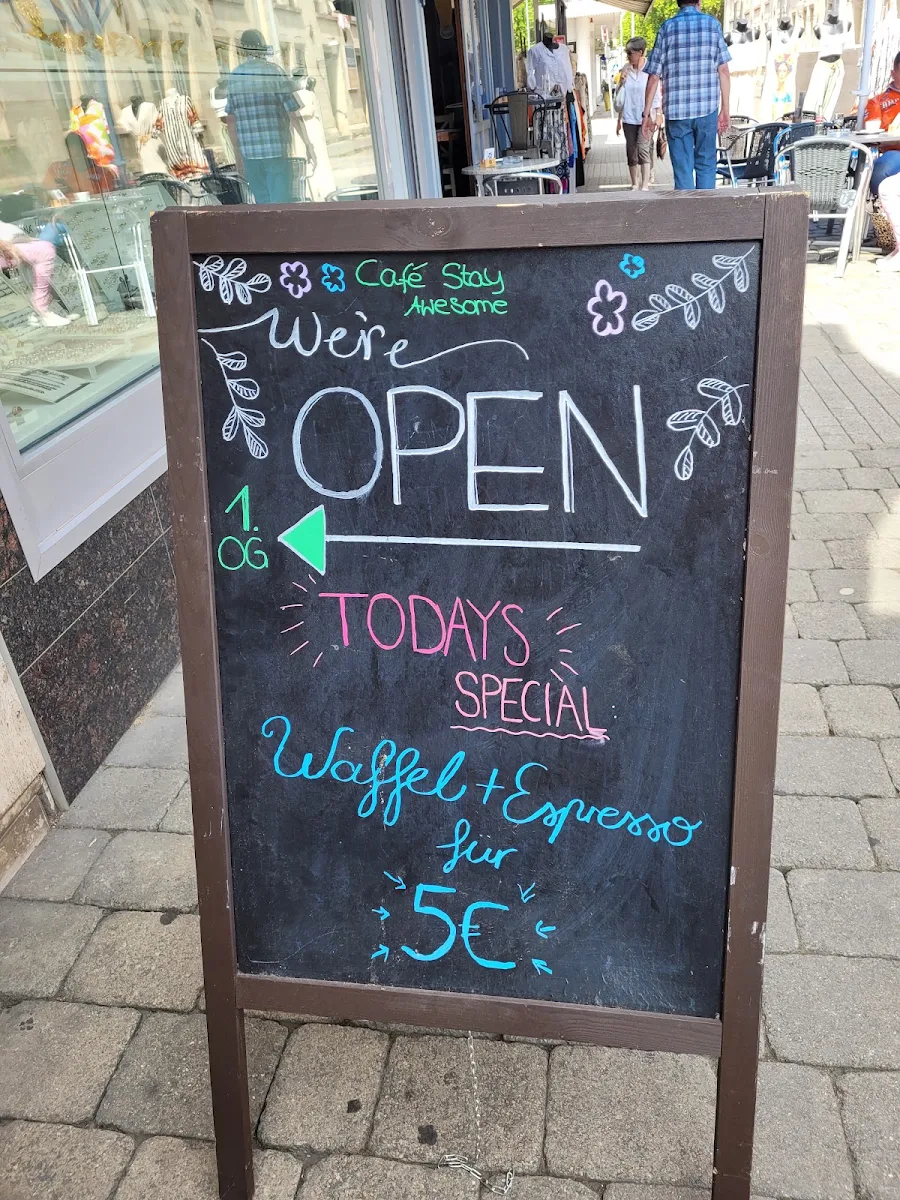 Café Stay
Awesome
We're
OPEN
1.
OG
TODAYS
SPECIAL
Waffel + Espresso
für
5€